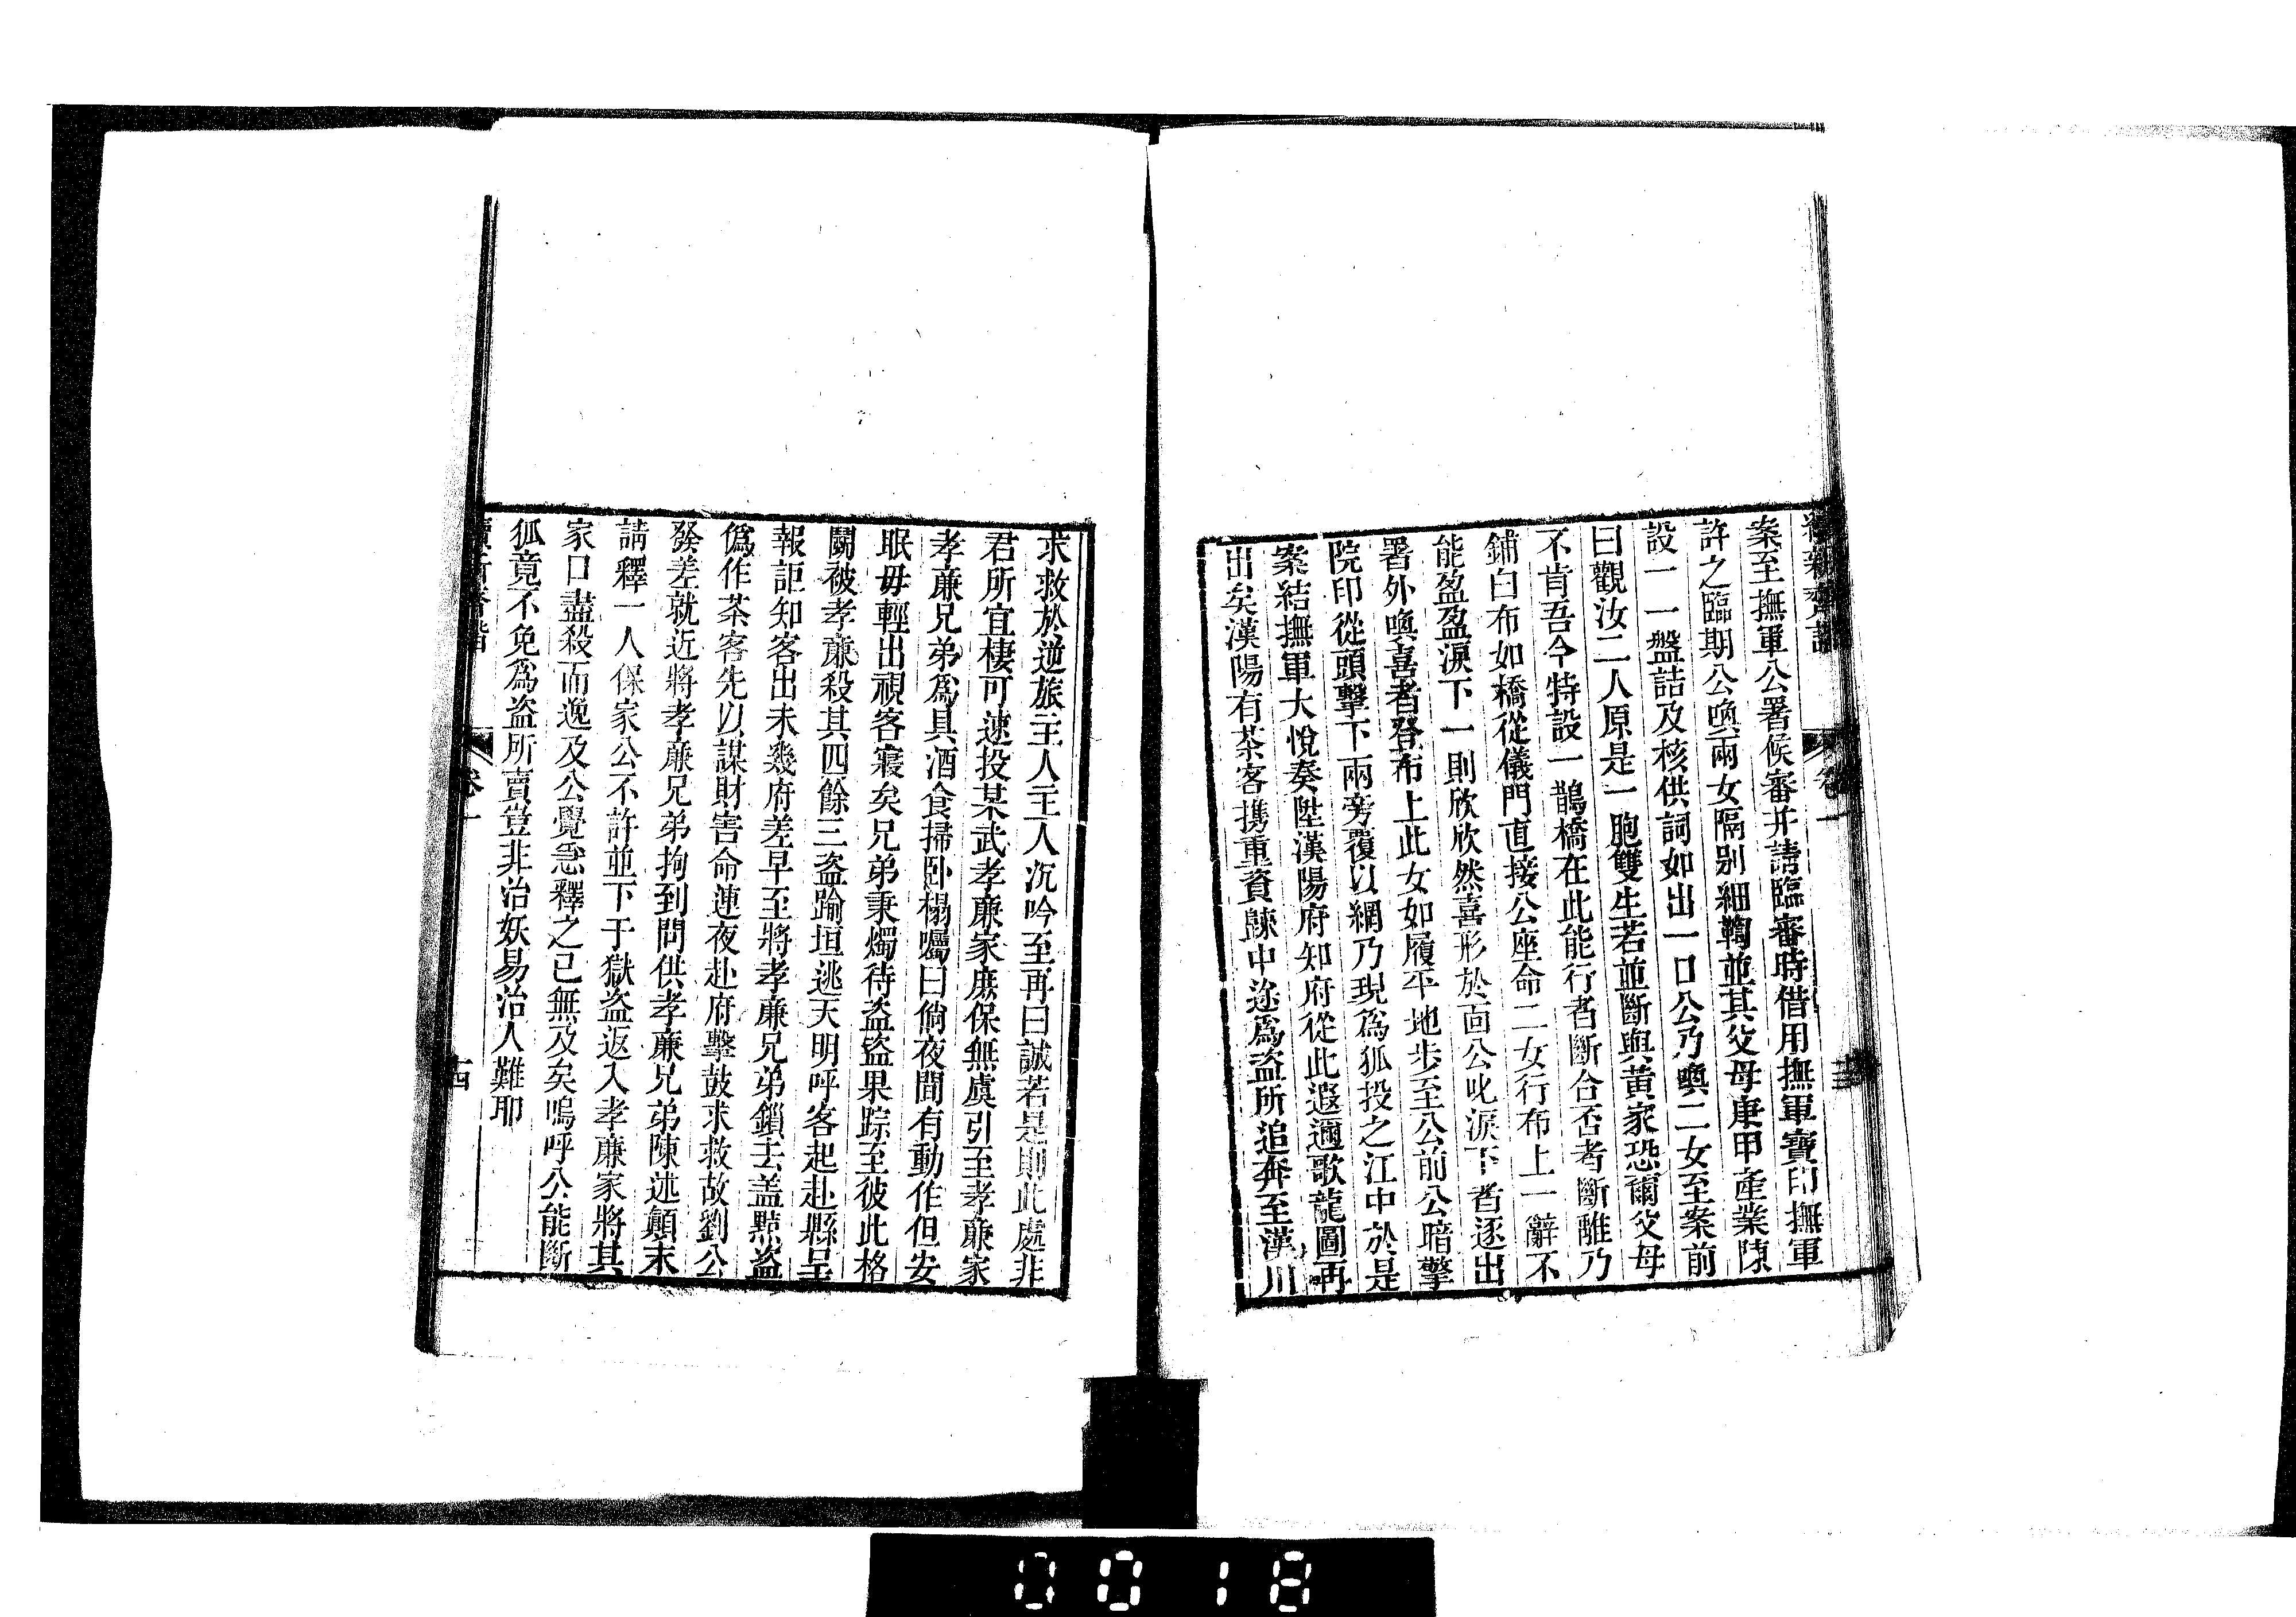 續新齊諧 卷一 十三
案至撫軍公署候審并請臨審時借用撫軍寶印撫軍
許之臨期公喚兩女隔别細鞫並其父母庚甲產業陳
設一一盤詰及核供詞如出一口公乃喚二女至案前
曰觀汝二人原是一胞雙生若並斷與黄家恐爾父母
不肯吾今特設一鵲橋在此能行者斷合否者斷離乃
鋪白布如橋從儀門直接公座命二女行布上一辭不
能盈盈淚下一則欣欣然喜形於面公叱淚下者逐出
署外喚喜者登布上此女如履平地步至公前公暗擎
院印從頭擊下兩旁覆以網乃現為狐投之江中於是
案結撫軍大悅奏陞漢陽府知府從此遐邇歌龍圖再
出矣漢陽有茶客携重資歸中途為盗所追奔至漢川
求救於逆旅主人主人沉吟至再曰誠若是則此處非
君所宜棲可速投某武孝廉家庶保無虞引至孝廉家
孝廉兄弟為具酒食掃卧榻囑曰倘夜間有動作但安
眠毋輕出視客寢矣兄弟秉燭待盗盗果踪至彼此格
鬬被孝廉殺其四餘三盗踰垣逃天明呼客起赴縣呈
報詎知客出未幾府差早至將孝廉兄弟鎖去盖黠盗
僞作茶客先以謀財害命連夜赴府擊鼓求救故劉公
發差就近將孝廉兄弟拘到問供孝廉兄弟陳述顛末
請釋一人保家公不許並下于獄盗返入孝廉家將其
家口盡殺而逸及公覺急釋之已無及矣嗚呼公能斷
狐竟不免為盗所賣豈非治妖易治人難耶
續新齊諧 卷一 十四
0018